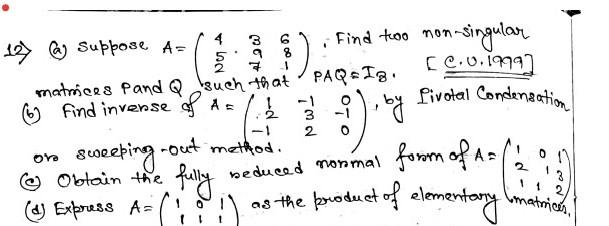 12) (a) Suppose A = ( 4 3 6
5 9 8
2 7 1 ). Find two non-singular
[C.U. 1999]
matrices P and Q such that PAQ = I3.
(b) Find inverse of A = ( 1 -1 0
2 3 -1
-1 2 0 ), by Pivotal Condensation
or sweeping-out method.
(c) Obtain the fully reduced normal form of A = ( 1 0 1
2 1 3
1 1 2 )
(d) Express A = ( 1 0 1
1 1 1 as the product of elementary matrices.